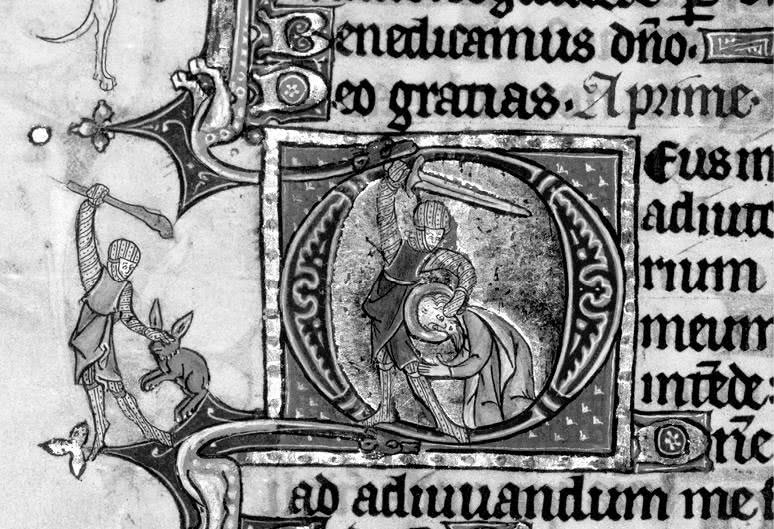 Benedicamus dño.
Deo gratias. A prime.
Deus in
adiuto
rium
meum
intēde.
Dñe
ad adiuuandum me f